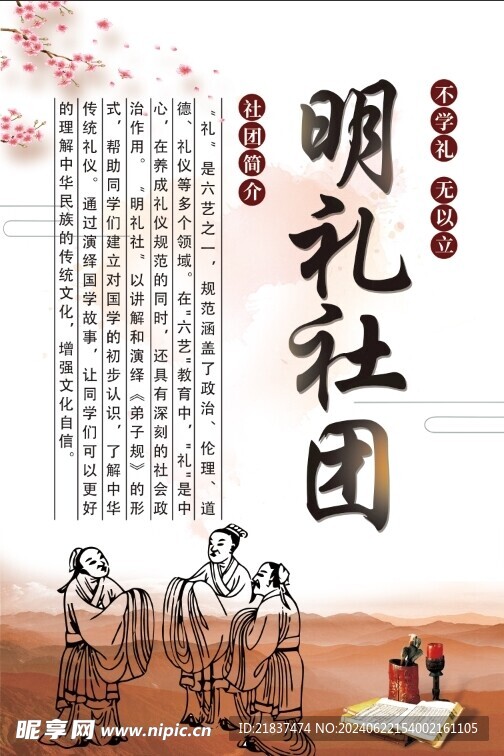 不学礼 无以立
明礼社团
社团简介
“礼”是六艺之一，规范涵盖了政治、伦理、道
德、礼仪等多个领域。在“六艺”教育中，“礼”是中
心，在养成礼仪规范的同时，还具有深刻的社会政
治作用。“明礼社”以讲解和演绎《弟子规》的形
式，帮助同学们建立对国学的初步认识，了解中华
传统礼仪。通过演绎国学故事，让同学们可以更好
的理解中华民族的传统文化，增强文化自信。
昵享网 www.nipic.cn
ID:21837474 NO:20240622154002161105